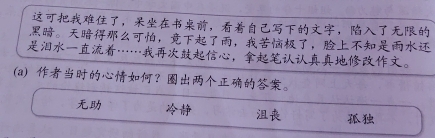 这可把我难住了，呆坐在书桌前，看着自己写下的文字，陷入了无限的
黑暗。天暗得那么可怕，竟下起了雨，我苦恼极了，脸上不知是雨水还
是泪水一直流着……我再次鼓起信心，拿起笔认认真真地修改作文。
(a) 作者当时的心情如何？圈出两个正确的答案。
无助 冷静 沮丧 孤独